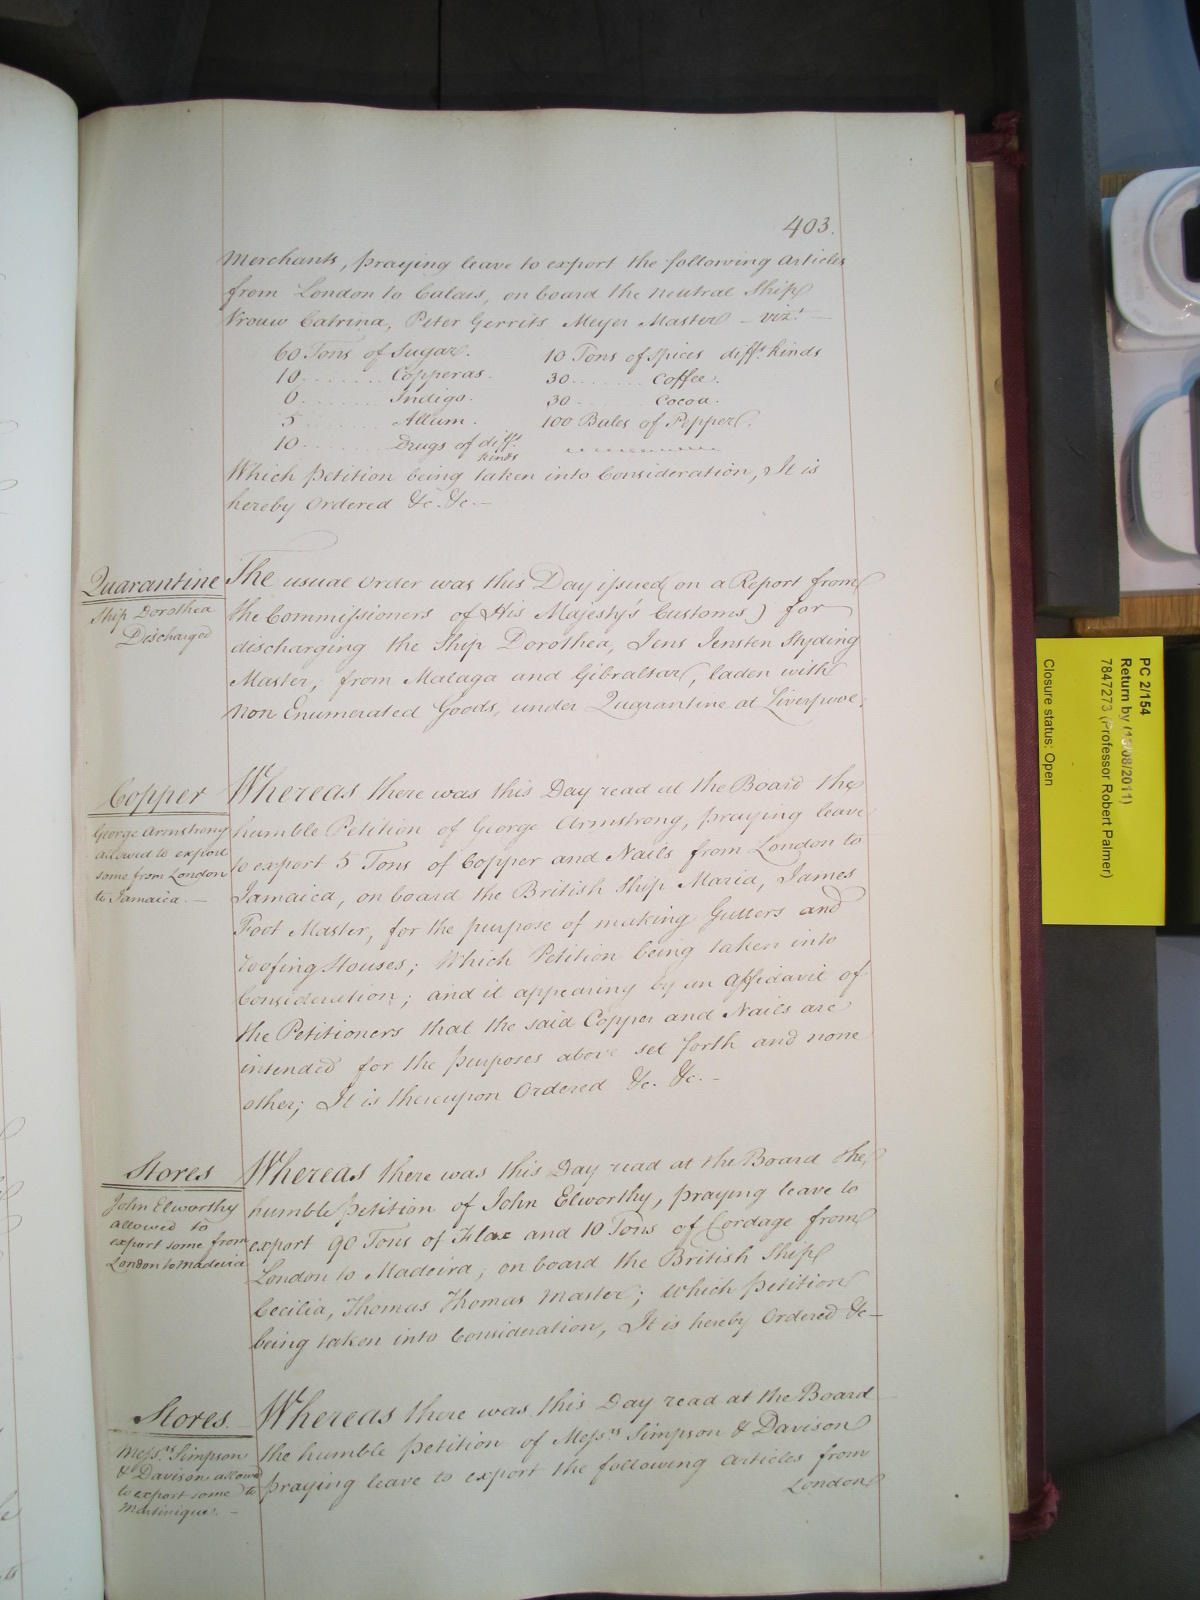 403.
Merchants, praying leave to export the following Articles
from London to Calais, on board the Neutral Ship
Vrouw Catrina, Peter Gerrits Meyer Master – vizt. –
60 Tons of Sugar. 10 Tons of Spices difft. kinds
10 ........ Copperas. 30 ....... Coffee.
6 ........ Indigo. 30 ....... Cocoa.
5 ........ Allum. 100 Bales of Pepper.
10 ........ Drugs of difft.
kinds
Which Petition being taken into Consideration, It is
hereby Ordered &c. &c. –
Quarantine
Ship Dorothea
Discharged
The usual Order was this Day issued (on a Report from
the Commissioners of His Majesty's Customs) for
discharging the Ship Dorothea, Jens Jensten Styding
Master, from Malaga and Gibraltar, laden with
Non Enumerated Goods, under Quarantine at Liverpool.
Copper
George Armstrong
allowed to export
some from London
to Jamaica. –
Whereas there was this Day read at the Board the
humble Petition of George Armstrong, praying leave
to export 5 Tons of Copper and Nails from London to
Jamaica, on board the British Ship Maria, James
Foot Master, for the purpose of making Gutters and
roofing Houses; Which Petition being taken into
Consideration; and it appearing by an Affidavit of
the Petitioners that the said Copper and Nails are
intended for the purposes above set forth and none
other; It is thereupon Ordered &c. &c. –
Stores
John Elworthy
allowed to
export some from
London to Madeira
Whereas there was this Day read at the Board the
humble Petition of John Elworthy, praying leave to
export 90 Tons of Flax and 10 Tons of Cordage from
London to Madeira, on board the British Ship
Cecilia, Thomas Thomas Master; which Petition
being taken into Consideration, It is hereby Ordered &c –
Stores.
Messrs. Simpson
& Davison allowed
to export some to
Martinique. –
Whereas there was this Day read at the Board
the humble Petition of Messrs Simpson & Davison
praying leave to export the following Articles from
London
PC 2/154
Return by (15/08/2011)
7847273 (Professor Robert Palmer)
Closure status: Open